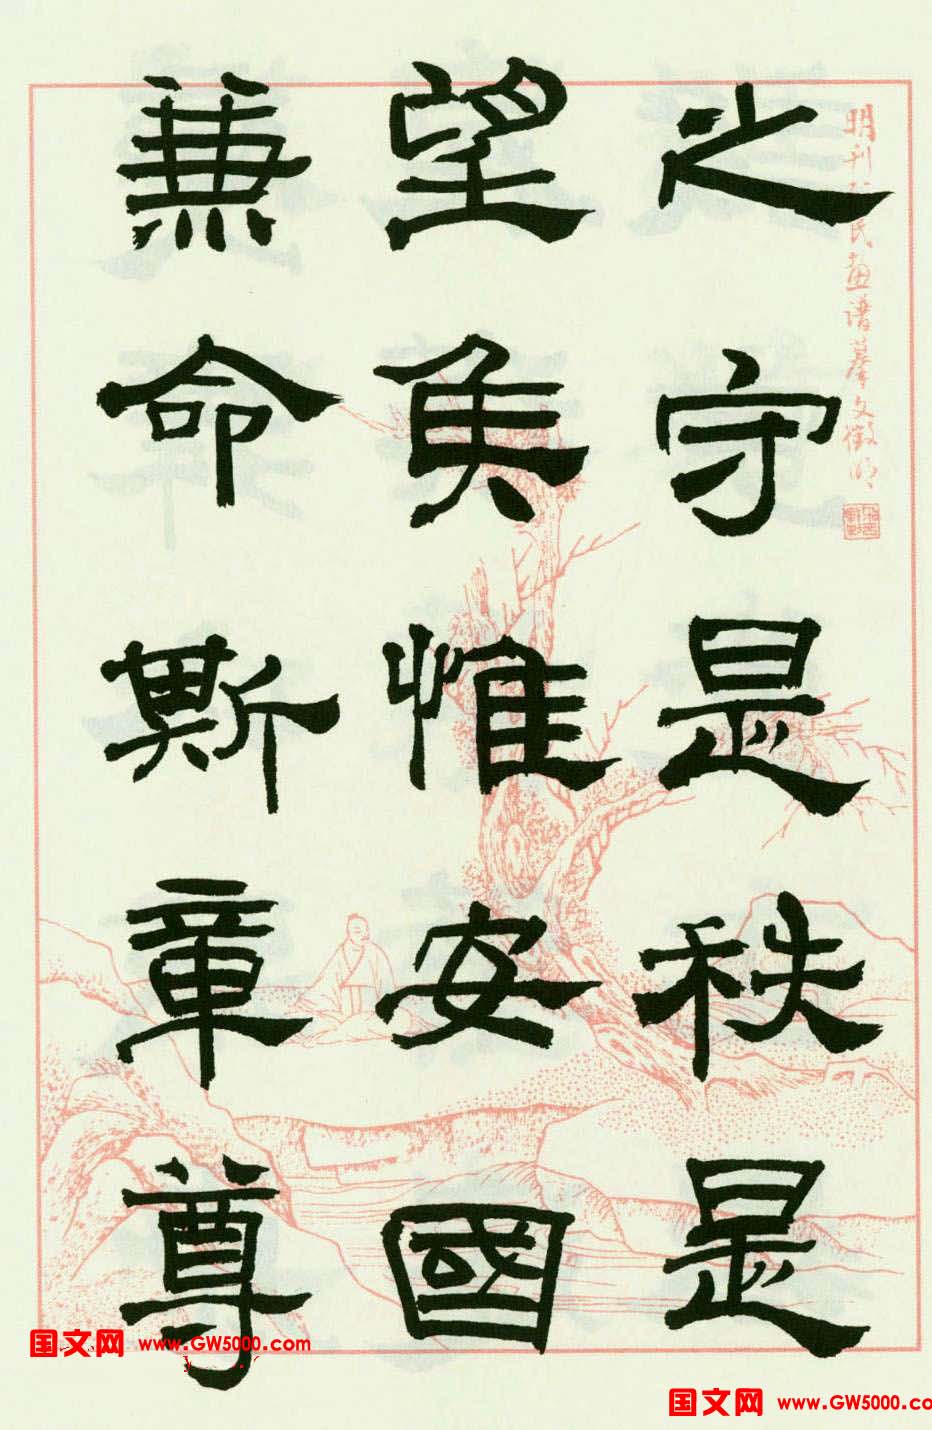 之守是秩是
望矦惟安國
兼命斯章尊
明刊 民畫譜摹文徵明
国文网 www.GW5000.com
国文网 www.GW5000.co